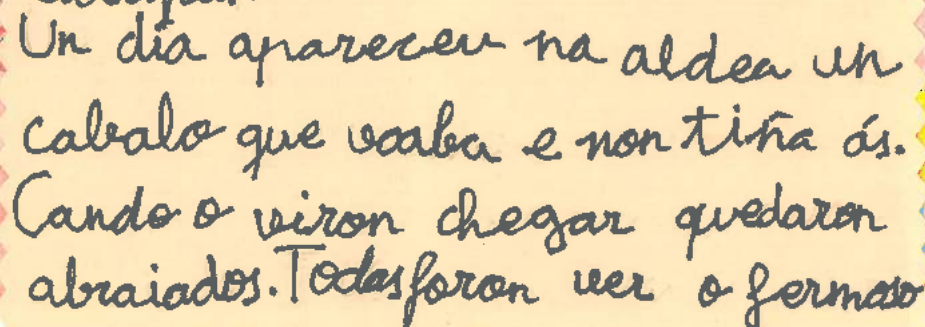 Un día apareceu na aldea un
cabalo que voaba e non tiña ás.
Cando o viron chegar quedaron
abraiados. Todas foron ver o fermoso